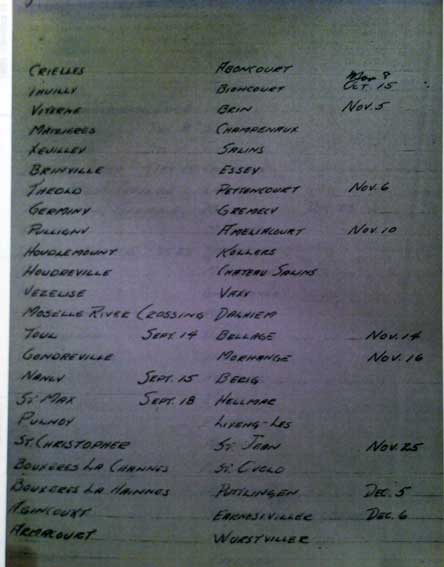 CRIELLES ABONCOURT
THUILLY BIONCOURT OCT. 15
VITERNE BRIN NOV. 5
MAIZIERES CHAMPENAUX
XEUILLEY SALINS
BRINVILLE ESSEY
THEOLD PETTENCOURT NOV. 6
GERMINY GREMECY
PULLIGNY AMELIACOURT NOV. 10
HOUDLEMOUNT KOLLERS
HOUDREVILLE CHATEAU SALINS
VEZELISE VAXY
MOSELLE RIVER CROSSING DALHIEM
TOUL SEPT. 14 BELLAGE NOV. 14
GONDREVILLE MORHANGE NOV. 16
NANCY SEPT. 15 BERIG
ST. MAX SEPT. 18 HELLMAR
PULNOY LIXENG-LES
ST. CHRISTOPHER ST. JEAN NOV. 25
BOUXERES LA CHANNES ST. CVOLO
BOUXERES LA HAINNES PUTTLINGEN DEC. 5
AGINCOURT EARNOSIVILLER DEC. 6
ARMACOURT WURSTVILLER